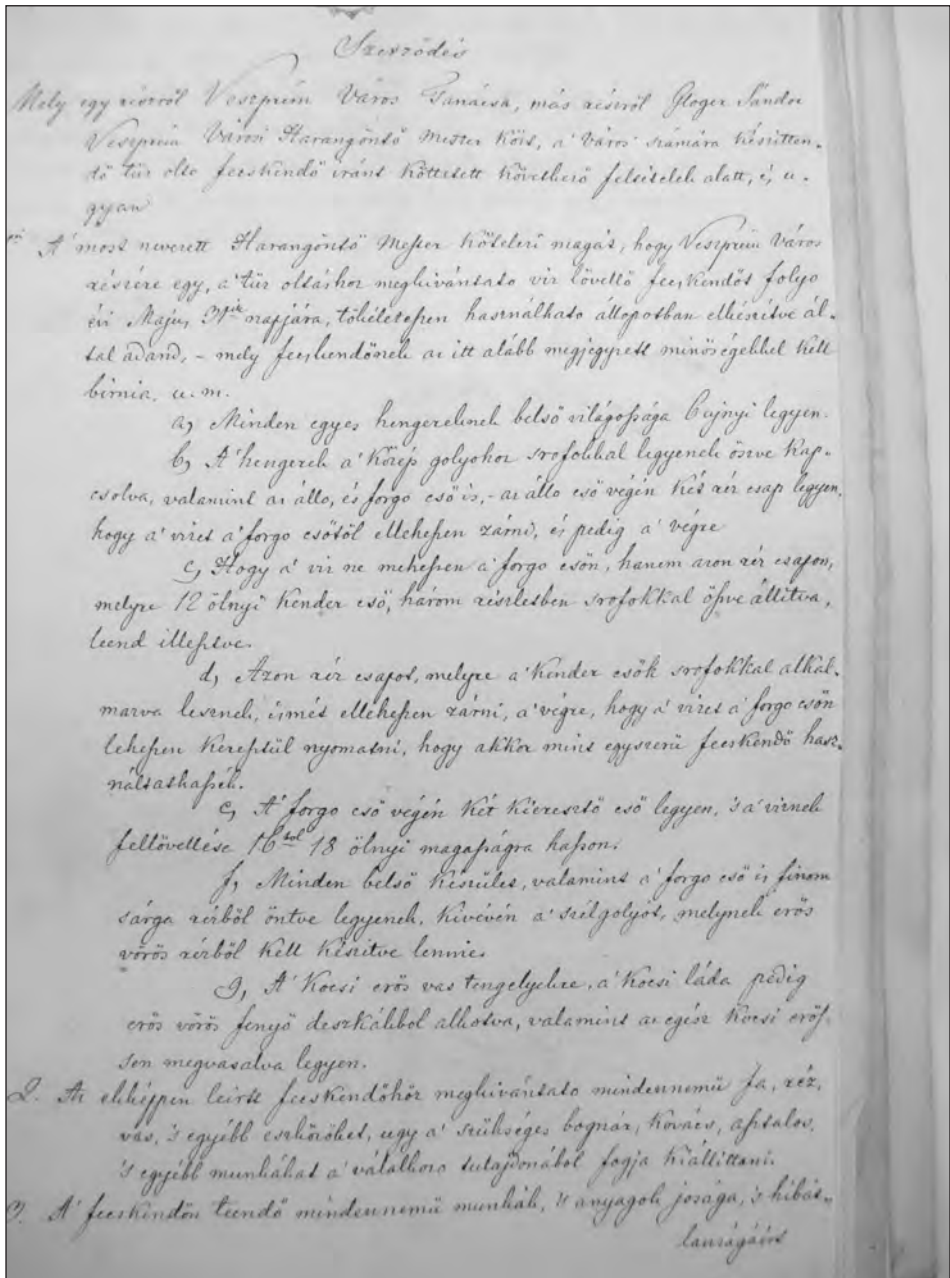 Szerződés
Mely egy részről Veszprém Város Tanácsa, más részről Gloger Sándor
Veszprém Városi Harangöntő Mester közt, a' Város számára készitten-
dő tűz oltó fecskendő iránt köttetett következő feltételek alatt, és u-
gyan
A' most nevezett Harangöntő Mester kötelezi magát, hogy Veszprém Város
részére egy, a' tűz oltáshoz megkivántató viz lövellő fecskendőt folyo
évi Május 31ik napjára, tökéletessen használható állopotban elkészítve ál-
tal adand, – mely fecskendőnek az itt alább megjegyzett minőségekkel kell
birnia, u. m.
a, Minden egyes hengereknek belső világossága 6 ujnyi legyen.
b, A' hengerek a' közép golyohoz srofokkal legyenek öszve kap-
csolva, valamint az álló, és forgo cső is, – az álló cső végén két réz csap legyen,
hogy a' vizet a' forgo csőtől ellehessen zárni, és pedig a' végre
c, Hogy a' viz ne mehessen a' forgo csőn, hanem azon réz csapon,
melyre 12 ölnyi kender cső, három részletben srofokkal öszve állitva,
leend illesztve.
d, Azon réz csapot, melyre a' kender csők srofokkal alkal-
mazva lesznek, ismét ellehessen zárni, a' végre, hogy a' vizet a' forgo csőn
lehessen keresztül nyomatni, hogy akkor mint egyszerü fecskendő hasz-
náltathassék.
e, A' forgo cső végén két kieresztő cső legyen, 's a' viznek
fellövellése 16tol 18 ölnyi magasságra hasson.
f, Minden belső készület, valamint a' forgo cső is finom
sárga rézből öntve legyenek, kivévén a' szélgolyot, melynek erős
vörös rézből kell készitve lennie.
g, A' Kocsi erős vas tengelyekre, a' kocsi láda pedig
erös vörös fenyő deszkákbol alkotva, valamint az egész kocsi erős-
sen megvasalva legyen.
2. Az ekképpen leirtt fecskendőhöz megkivántató mindennemü fa, réz,
vas, 's egyébb eszközöket, ugy a' szükséges bognár, kovács, asztalos,
's egyébb munkákat a' válalkozo tulajdonából fogja kiállittani.
3. A' fecskendőn teendő mindennemü munkák, 's anyagok josága, 's hibát-
lanságáért